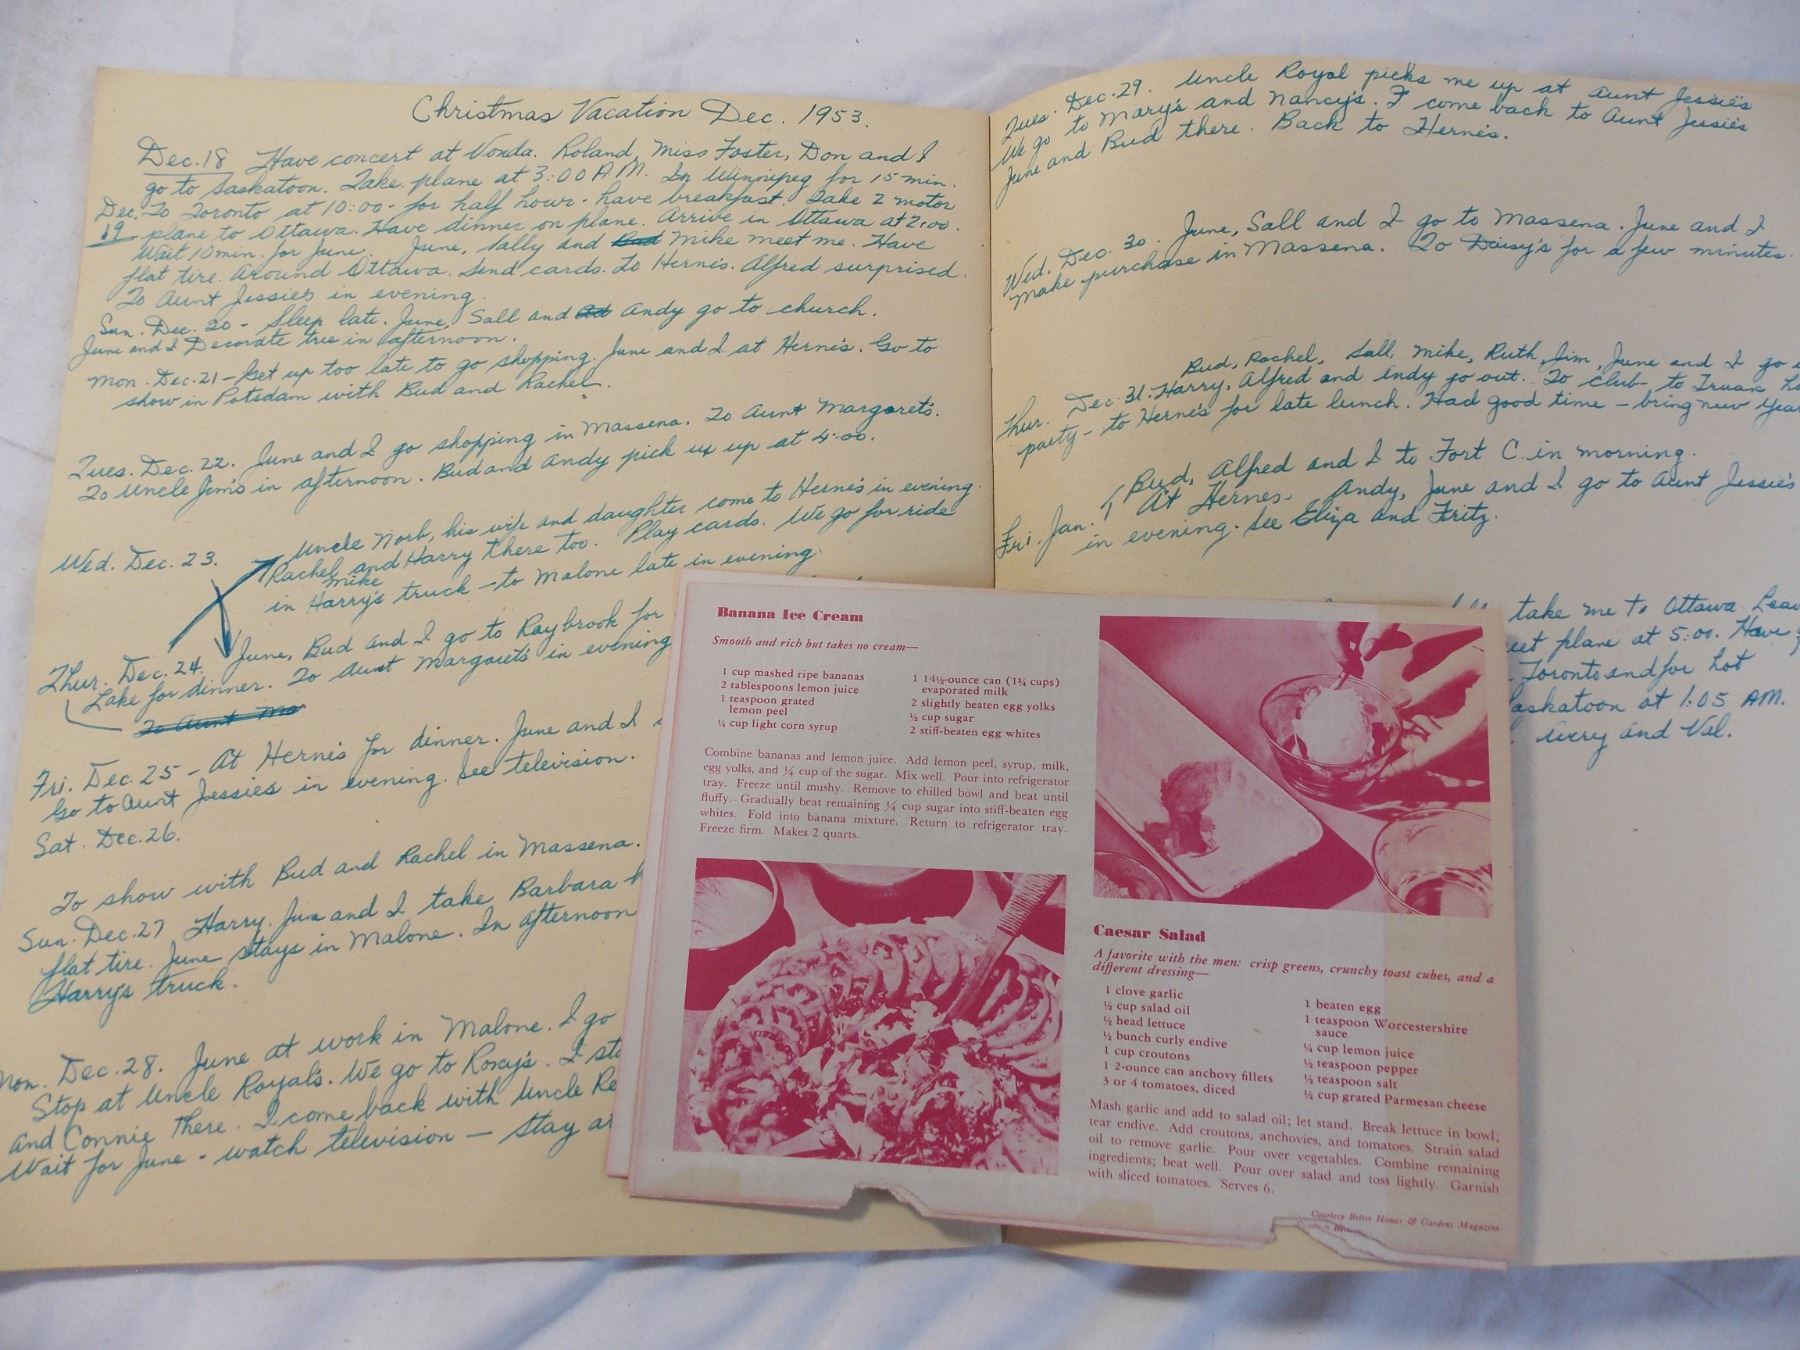 Christmas Vacation Dec. 1953.
Dec. 18 Have concert at Vonda. Roland, Miss Foster, Don and I
go to Saskatoon. Take plane at 3:00 A.M. In Winnipeg for 15 min.
Dec. 19 To Toronto at 10:00 - for half hour - have breakfast. Take 2 motor
plane to Ottawa. Have dinner on plane. Arrive in Ottawa at 2:00.
Wait 10 min. for June. June, Sally and Mike meet me. Have
flat tire. Around Ottawa. Send cards. To Herne's. Alfred surprised.
To Aunt Jessie's in evening.
Sun. Dec. 20 - Sleep late. June, Sall and Andy go to church.
June and I Decorate tree in afternoon.
Mon. Dec. 21 - Get up too late to go shopping. June and I at Herne's. Go to
show in Potsdam with Bud and Rachel.
Tues. Dec. 22. June and I go shopping in Massena. To Aunt Margaret's.
To Uncle Jim's in afternoon. Bud and Andy pick us up at 4:00.
Wed. Dec. 23. Uncle Norb, his wife and daughter come to Herne's in evening.
Rachel and Harry there too. Play cards. We go for ride
mike
in Harry's truck - to Malone late in evening.
Thur. Dec. 24. June, Bud and I go to Raybrook for
Lake for dinner. To Aunt Margaret's in evening
To Aunt Ma
Fri. Dec. 25 - At Herne's for dinner. June and I
Go to Aunt Jessies in evening. See television.
Sat. Dec. 26.
To show with Bud and Rachel in Massena.
Sun. Dec. 27 Harry, June and I take Barbara
flat tire. June stays in Malone. In afternoon
Harry's truck.
Mon. Dec. 28. June at work in Malone. I go
Stop at Uncle Royal's. We go to Roxy's. I
and Connie there. I come back with Uncle
Wait for June - watch television - stay
Tues. Dec. 29. Uncle Royal picks me up at Aunt Jessie's
We go to Mary's and Nancy's. I come back to Aunt Jessie's
June and Bud there. Back to Herne's.
Wed. Dec. 30. June, Sall and I go to Massena. June and I
make purchase in Massena. To Daisy's for a few minutes.
Bud, Rachel, Sall, Mike, Ruth, Jim, June and I go
Thur. Dec. 31. Harry, Alfred and Andy go out. To club, to Truax
party - to Herne's for late lunch. Had good time - bring new year
Bud, Alfred and I to Fort C. in morning.
Fri. Jan. 1 At Hernes. Andy, June and I go to Aunt Jessie's
in evening. See Eliza and Fritz.
take me to Ottawa.
plane at 5:00. Have
Toronto and for hot
Saskatoon at 1:05 AM.
and Val.
Banana Ice Cream
Smooth and rich but takes no cream—
1 cup mashed ripe bananas
2 tablespoons lemon juice
1 teaspoon grated
lemon peel
¼ cup light corn syrup
1 14½-ounce can (1¾ cups)
evaporated milk
2 slightly beaten egg yolks
½ cup sugar
2 stiff-beaten egg whites
Combine bananas and lemon juice. Add lemon peel, syrup, milk,
egg yolks, and ¼ cup of the sugar. Mix well. Pour into refrigerator
tray. Freeze until mushy. Remove to chilled bowl and beat until
fluffy. Gradually beat remaining ¼ cup sugar into stiff-beaten egg
whites. Fold into banana mixture. Return to refrigerator tray.
Freeze firm. Makes 2 quarts.
Caesar Salad
A favorite with the men: crisp greens, crunchy toast cubes, and a
different dressing—
1 clove garlic
½ cup salad oil
½ head lettuce
½ bunch curly endive
1 cup croutons
1 2-ounce can anchovy fillets
3 or 4 tomatoes, diced
1 beaten egg
1 teaspoon Worcestershire
sauce
¼ cup lemon juice
½ teaspoon pepper
½ teaspoon salt
½ cup grated Parmesan cheese
Mash garlic and add to salad oil; let stand. Break lettuce in bowl;
tear endive. Add croutons, anchovies, and tomatoes. Strain salad
oil to remove garlic. Pour over vegetables. Combine remaining
ingredients; beat well. Pour over salad and toss lightly. Garnish
with sliced tomatoes. Serves 6.
Courtesy Better Homes & Gardens Magazine